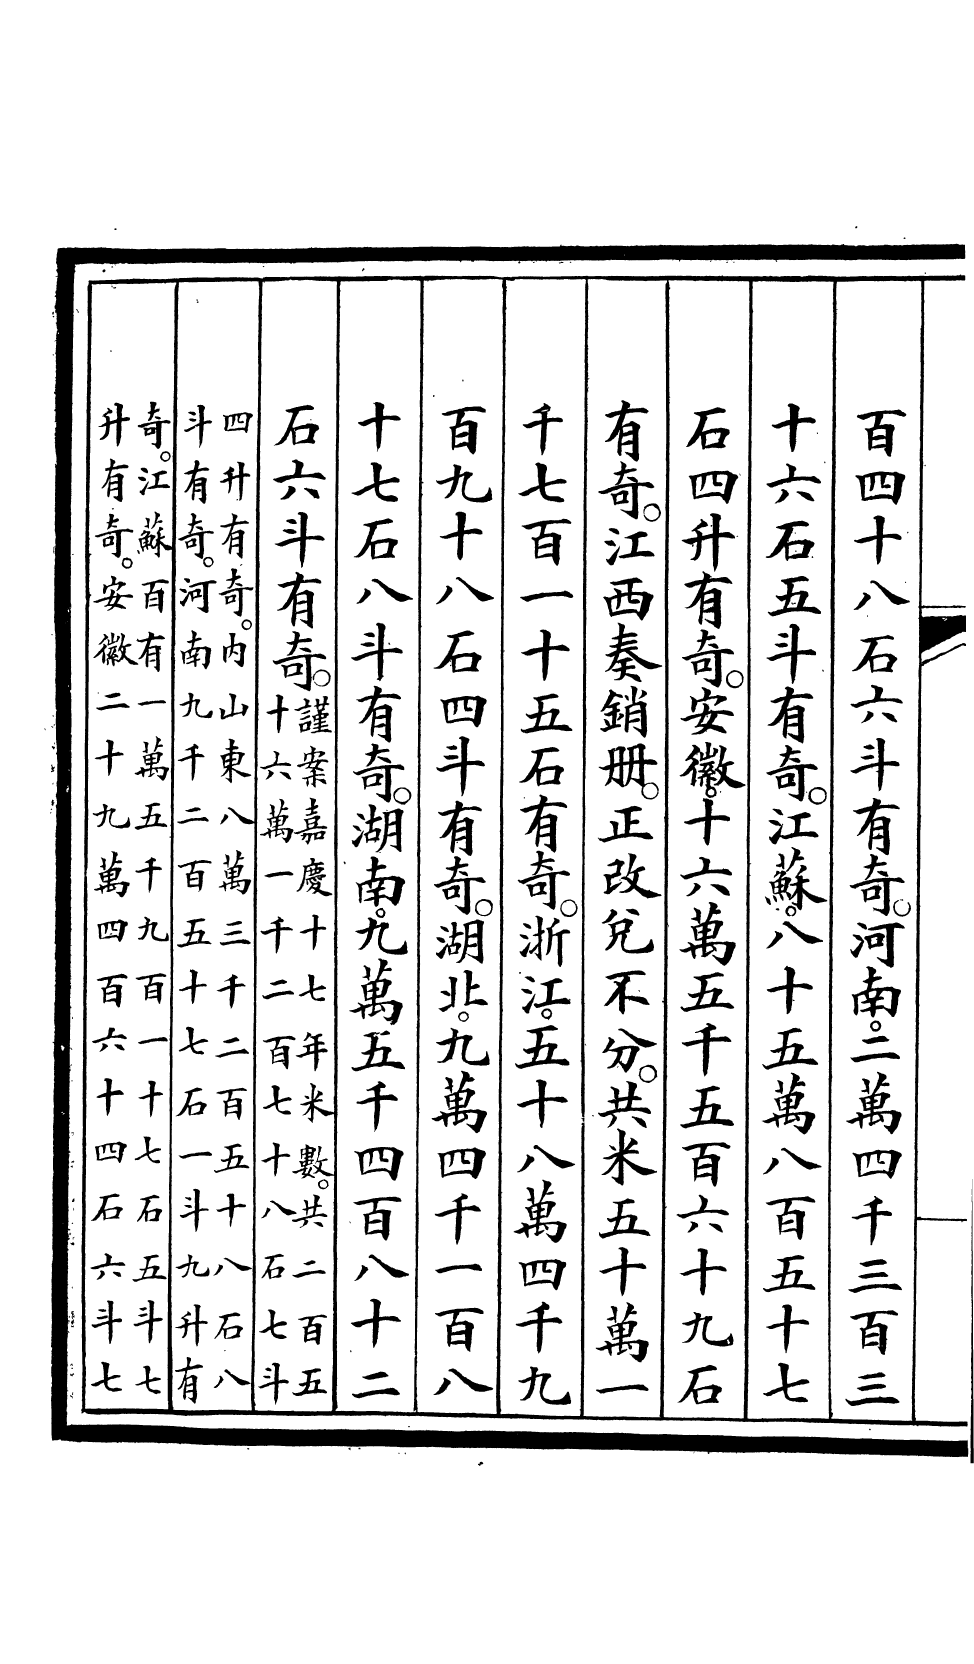 百四十八石六斗有奇。河南。二萬四千三百三
十六石五斗有奇。江蘇。八十五萬八百五十七
石四升有奇。安徽。十六萬五千五百六十九石
有奇。江西奏銷册。正改兌不分。共米五十萬一
千七百一十五石有奇。浙江。五十八萬四千九
百九十八石四斗有奇。湖北。九萬四千一百八
十七石八斗有奇。湖南。九萬五千四百八十二
石六斗有奇。謹案嘉慶十七年米數。共二百五
十六萬一千二百七十八石七斗
四升有奇。内山東八萬三千二百五十八石八
斗有奇。河南九千二百五十七石一斗九升有
奇。江蘇百有一萬五千九百一十七石五斗七
升有奇。安徽二十九萬四百六十四石六斗七